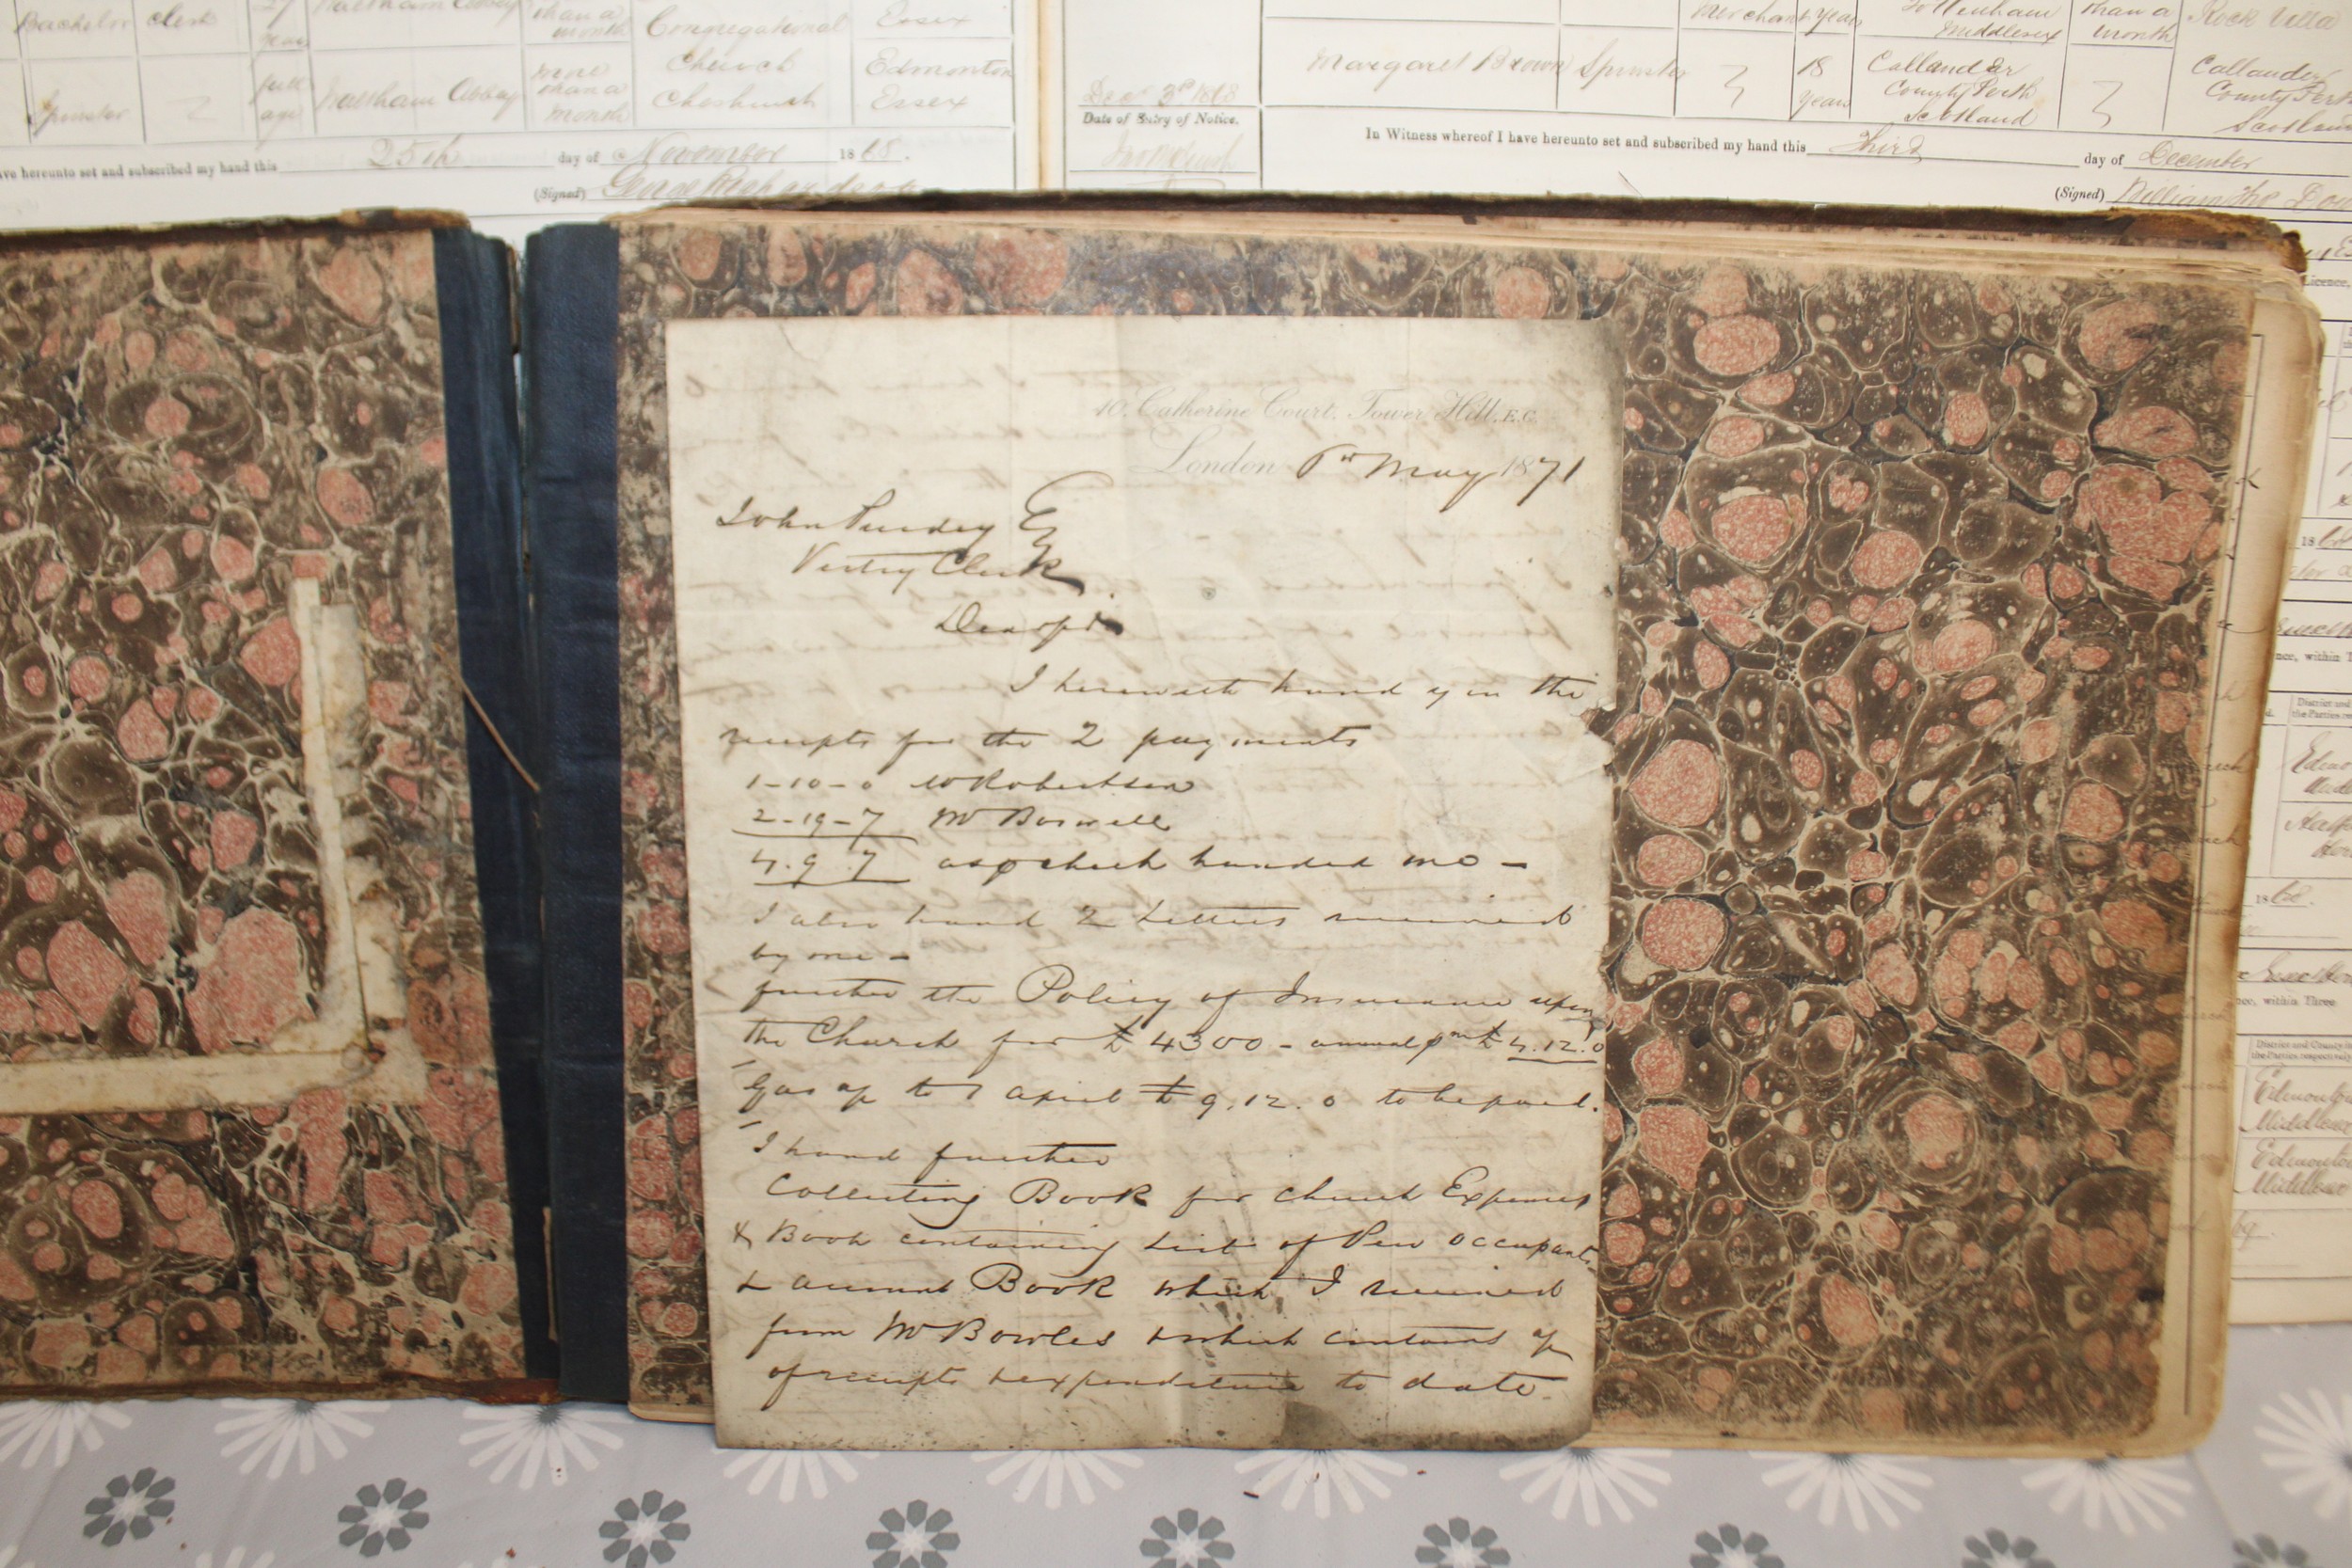 Bachelor Clerk 27 years Waltham Abbey than a month Congregational Essex
Church Edmonton
Spinster full age Waltham Abbey more than a month Cheshunt Essex
ve hereunto set and subscribed my hand this 25th day of November 1868.
(Signed)
Merchant years Tottenham Middlesex than a month Rock Villa
Margaret Brown Spinster 18 years Callander County Perth Scotland Callander County Perth Scotland
Dec 3rd 1868
Date of Entry of Notice.
In Witness whereof I have hereunto set and subscribed my hand this Third day of December
(Signed) William
10, Catherine Court, Tower Hill, E.C.
London 1st May 1871
John Purdey Esq
Vestry Clerk
Dear Sir
I herewith hand you the
receipts for the 2 payments
1-10-0 W Robertson
2-19-7 Mr Boswell
4.9.7 as p check handed me -
I also hand 2 Letters received
by me -
further the Policy of Insurance upon
the Church for £4300 - annual pmt £4.12.0
Gas up to April £9.12.0 to be paid.
I hand further
Collecting Book for Church Expenses
& Book containing List of Pew Occupants
& account Book which I received
from Mr Bowles & which contains
of receipts & expenditure to date.
Licence,
nce, within T
District and
the Parties re
1860.
nce, within Three
District and County in
the Parties respect
Edmonton
Middlesex
Edmonton
Middlesex